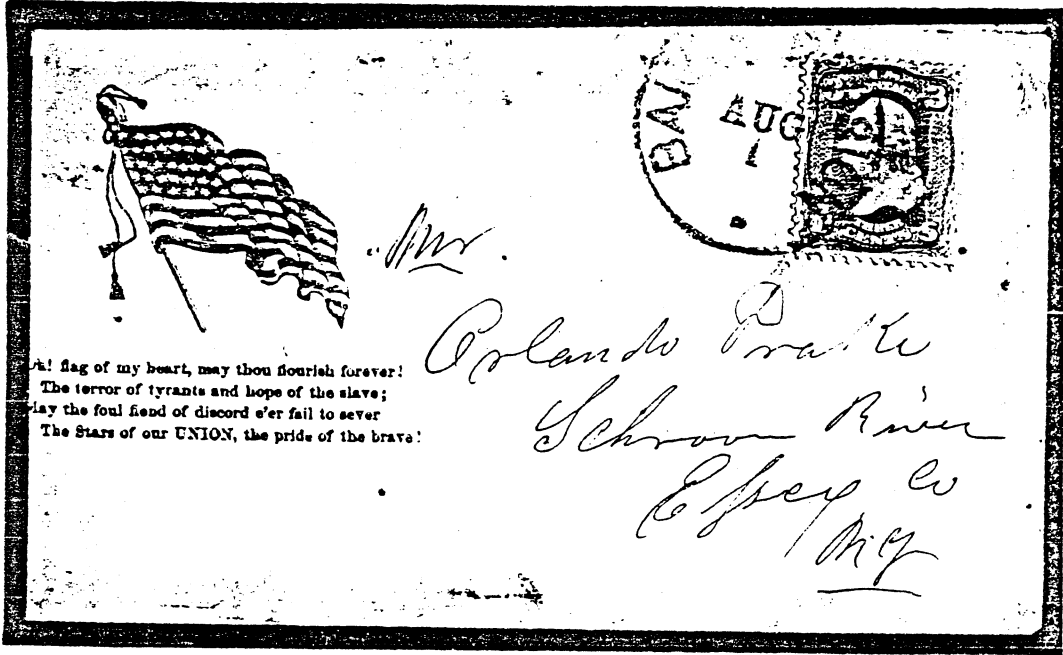 BAL
AUG
1
Mr
Orlando Drake
Schroon River
Essex Co
N.Y
Oh! flag of my heart, may thou flourish forever!
The terror of tyrants and hope of the slave;
May the foul fiend of discord e'er fail to sever
The Stars of our UNION, the pride of the brave!